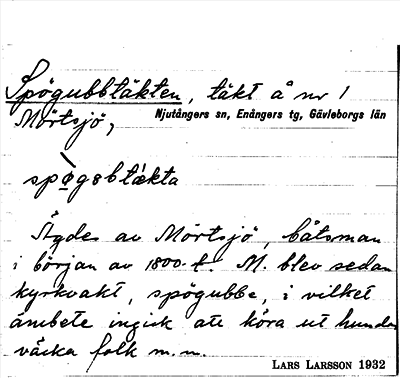 Spögubbtäkten, täkt å nr 1
Mörtsjö, Njutångers sn, Enångers tg, Gävleborgs län
spøgsbtäkta
Ägdes av Mörtsjö, båtsman
i början av 1800-t. M. blev sedan
kyrkvakt, spögubbe, i vilket
ämbete ingick att köra ut hundar
väcka folk m.m.
LARS LARSSON 1932